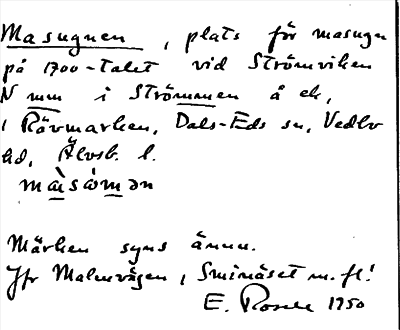 Masugnen, plats för masugn
på 1700-talet vid Strömviken
N mm i Strömmen å ek,
i Rävmarken, Dals-Eds sn, Vedbo
hd, Älvsb. l.
Märken syns ännu.
Jfr Malmvägen, Sminäset m. fl!
E. Rosell 1950